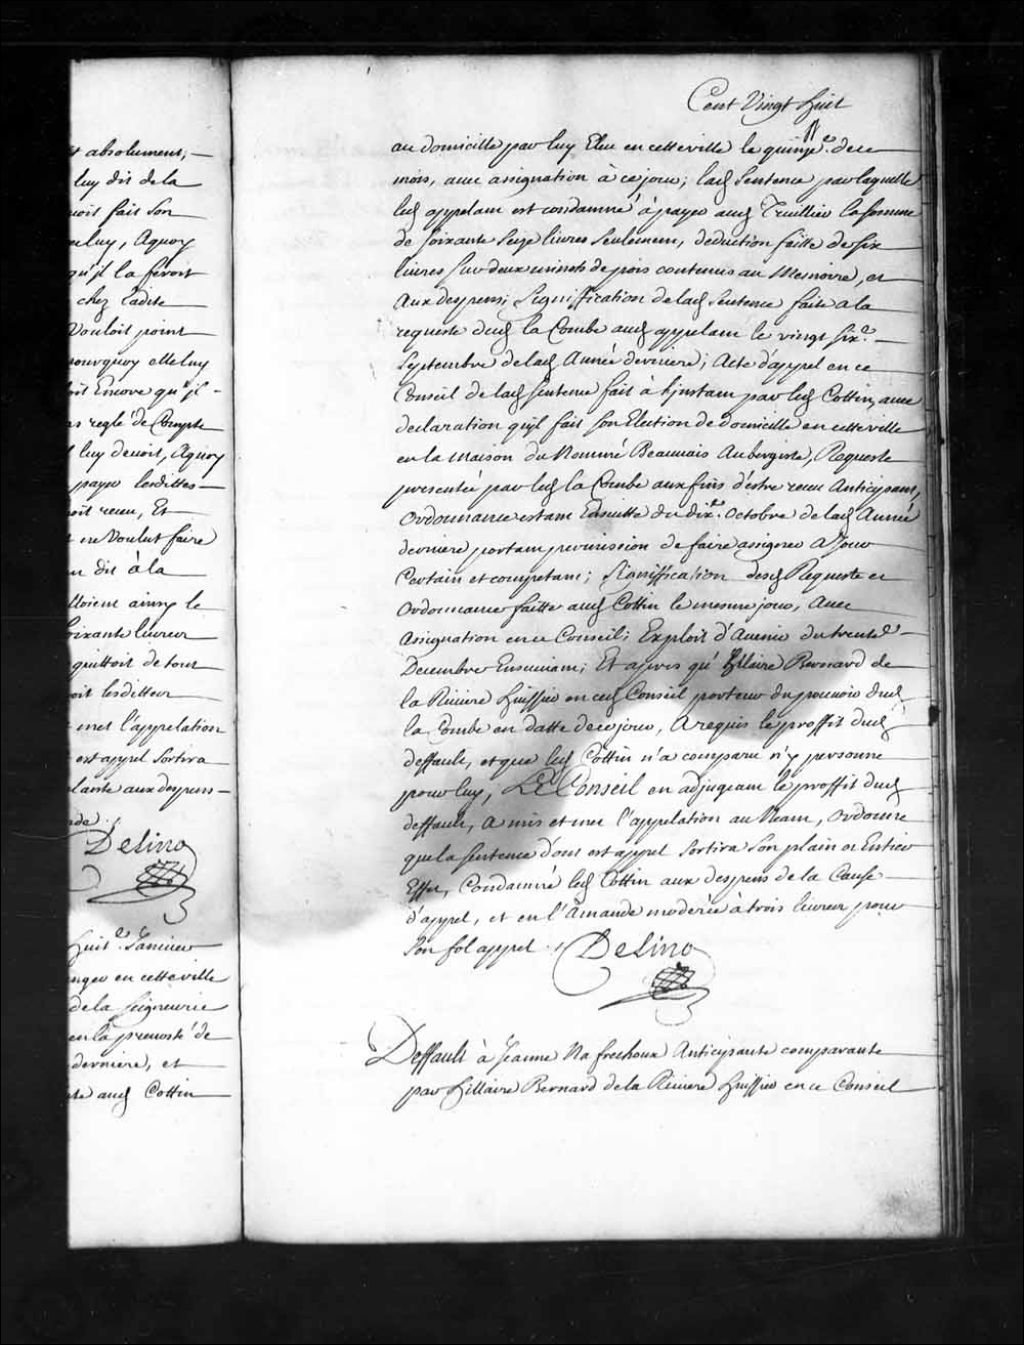 t absolument,
luy dit de la
voit fait Son
celuy, Aquoy
qu'jl la feroit
chez Ladite
Vouloit point
pourquoy elle luy
oit Encore qu'jl
as reglé de Compte
luy devoit, Aquoy
payer lesdittes
oit receu, Et
ne Voulut faire
dit à la
lloient ainsy le
soixante livres
quittoit de tout
oit lesdittes
met l'appelation
est appel Sortira
lante aux despens
nde.
Delino
huit.e Janvier
nger en cette ville
de la Seigneurie
en la prevosté de
derniere, et
te aud Cottin
Cent Vingt huit
au domicille par luy Eleu en cette ville le quinze.e de ce
mois, avec assignation à ce jour; lad Sentence par laquelle
led appelant est condamné à payer aud Truillier la somme
de Soixante Seize livres Seulement, deduction faitte de Six
livres Sur deux minots de pois contenus au Memoire, et
Aux despens; Signiffication de lad Sentence faite a la
requeste dud la Combe aud appelant le vingt six.e
Septembre de lad Année derniere; Acte d'appel en ce
Conseil de lad Sentence fait à l'jnstant par led Cottin, avec
declaration qu'jl fait Son Election de domicille en cette ville
en la Maison du Nommé Beauvais Aubergiste, Requeste
presentée par led la Combe aux fins d'estre receu Anticipant,
Ordonnance estant Ensuitte du dix.e Octobre de lad Année
derniere portant permission de faire assigner A Jour
Certain et competant; Signiffication desd Requeste et
Ordonnance faitte aud Cottin le mesme jour, Avec
Assignation en ce Conseil; Exploit d'Avenir du trente.e
Decembre Ensuivant; Et apres qu'Hilaire Bernard de
la Riviere Huissier en ced Conseil porteur du pouvoir dud
la Combe en datte de ce jour, A requis le proffit dud
deffault, et que led Cottin n'a comparu n'y personne
pour luy, LE Conseil en adjugeant le proffit dud
deffault, A mis et met l'appelation au Neant, Ordonne
que la Sentence dont est appel Sortira Son plain et Entier
Effet, Condamné led Cottin aux despens de la Cause
d'appel, et en l'Amande moderée à trois livres pour
Son fol appel.
Delino
Deffault à Jeanne Nafrechoux Anticipante comparante
par Hillaire Bernard de la Riviere Huissier en ce Conseil